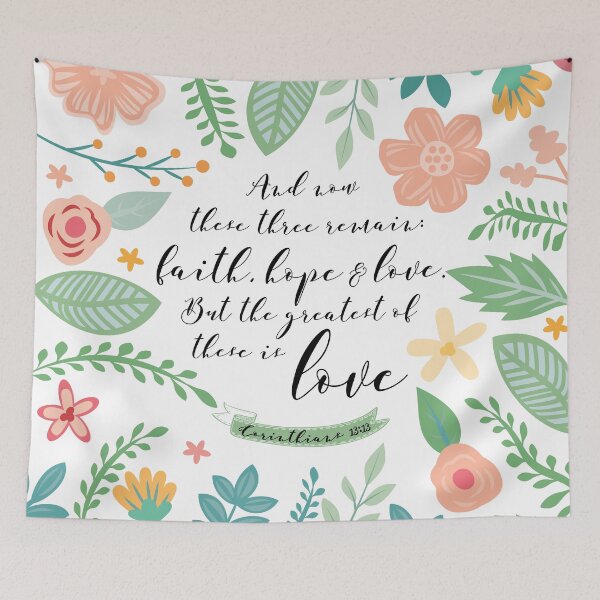 And now
these three remain:
faith, hope & love.
But the greatest of
these is love
Corinthians 13:13